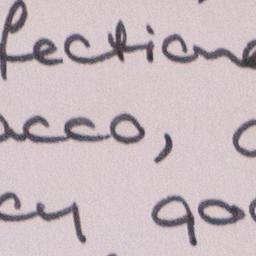 fectione
acco, c
cy goo